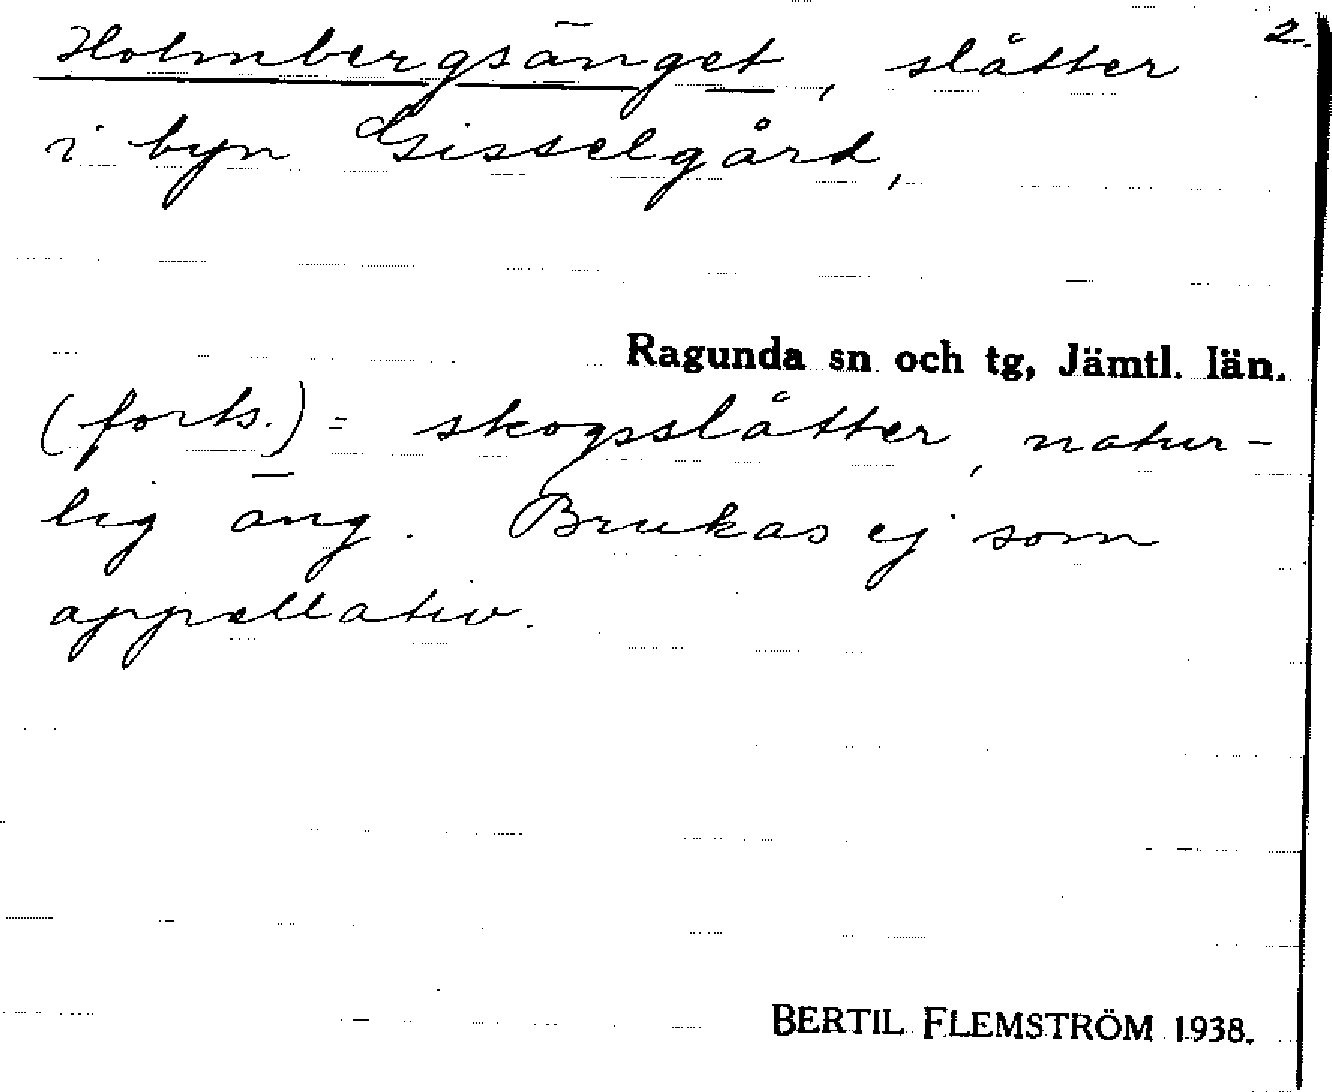 2.
Holmbergsänget, slåtter
i byn Gisselgård,
Ragunda sn och tg, Jämtl. län.
(forts.) = skogsslåtter, natur-
lig äng. Brukas ej som
appellativ.
BERTIL FLEMSTRÖM 1938.